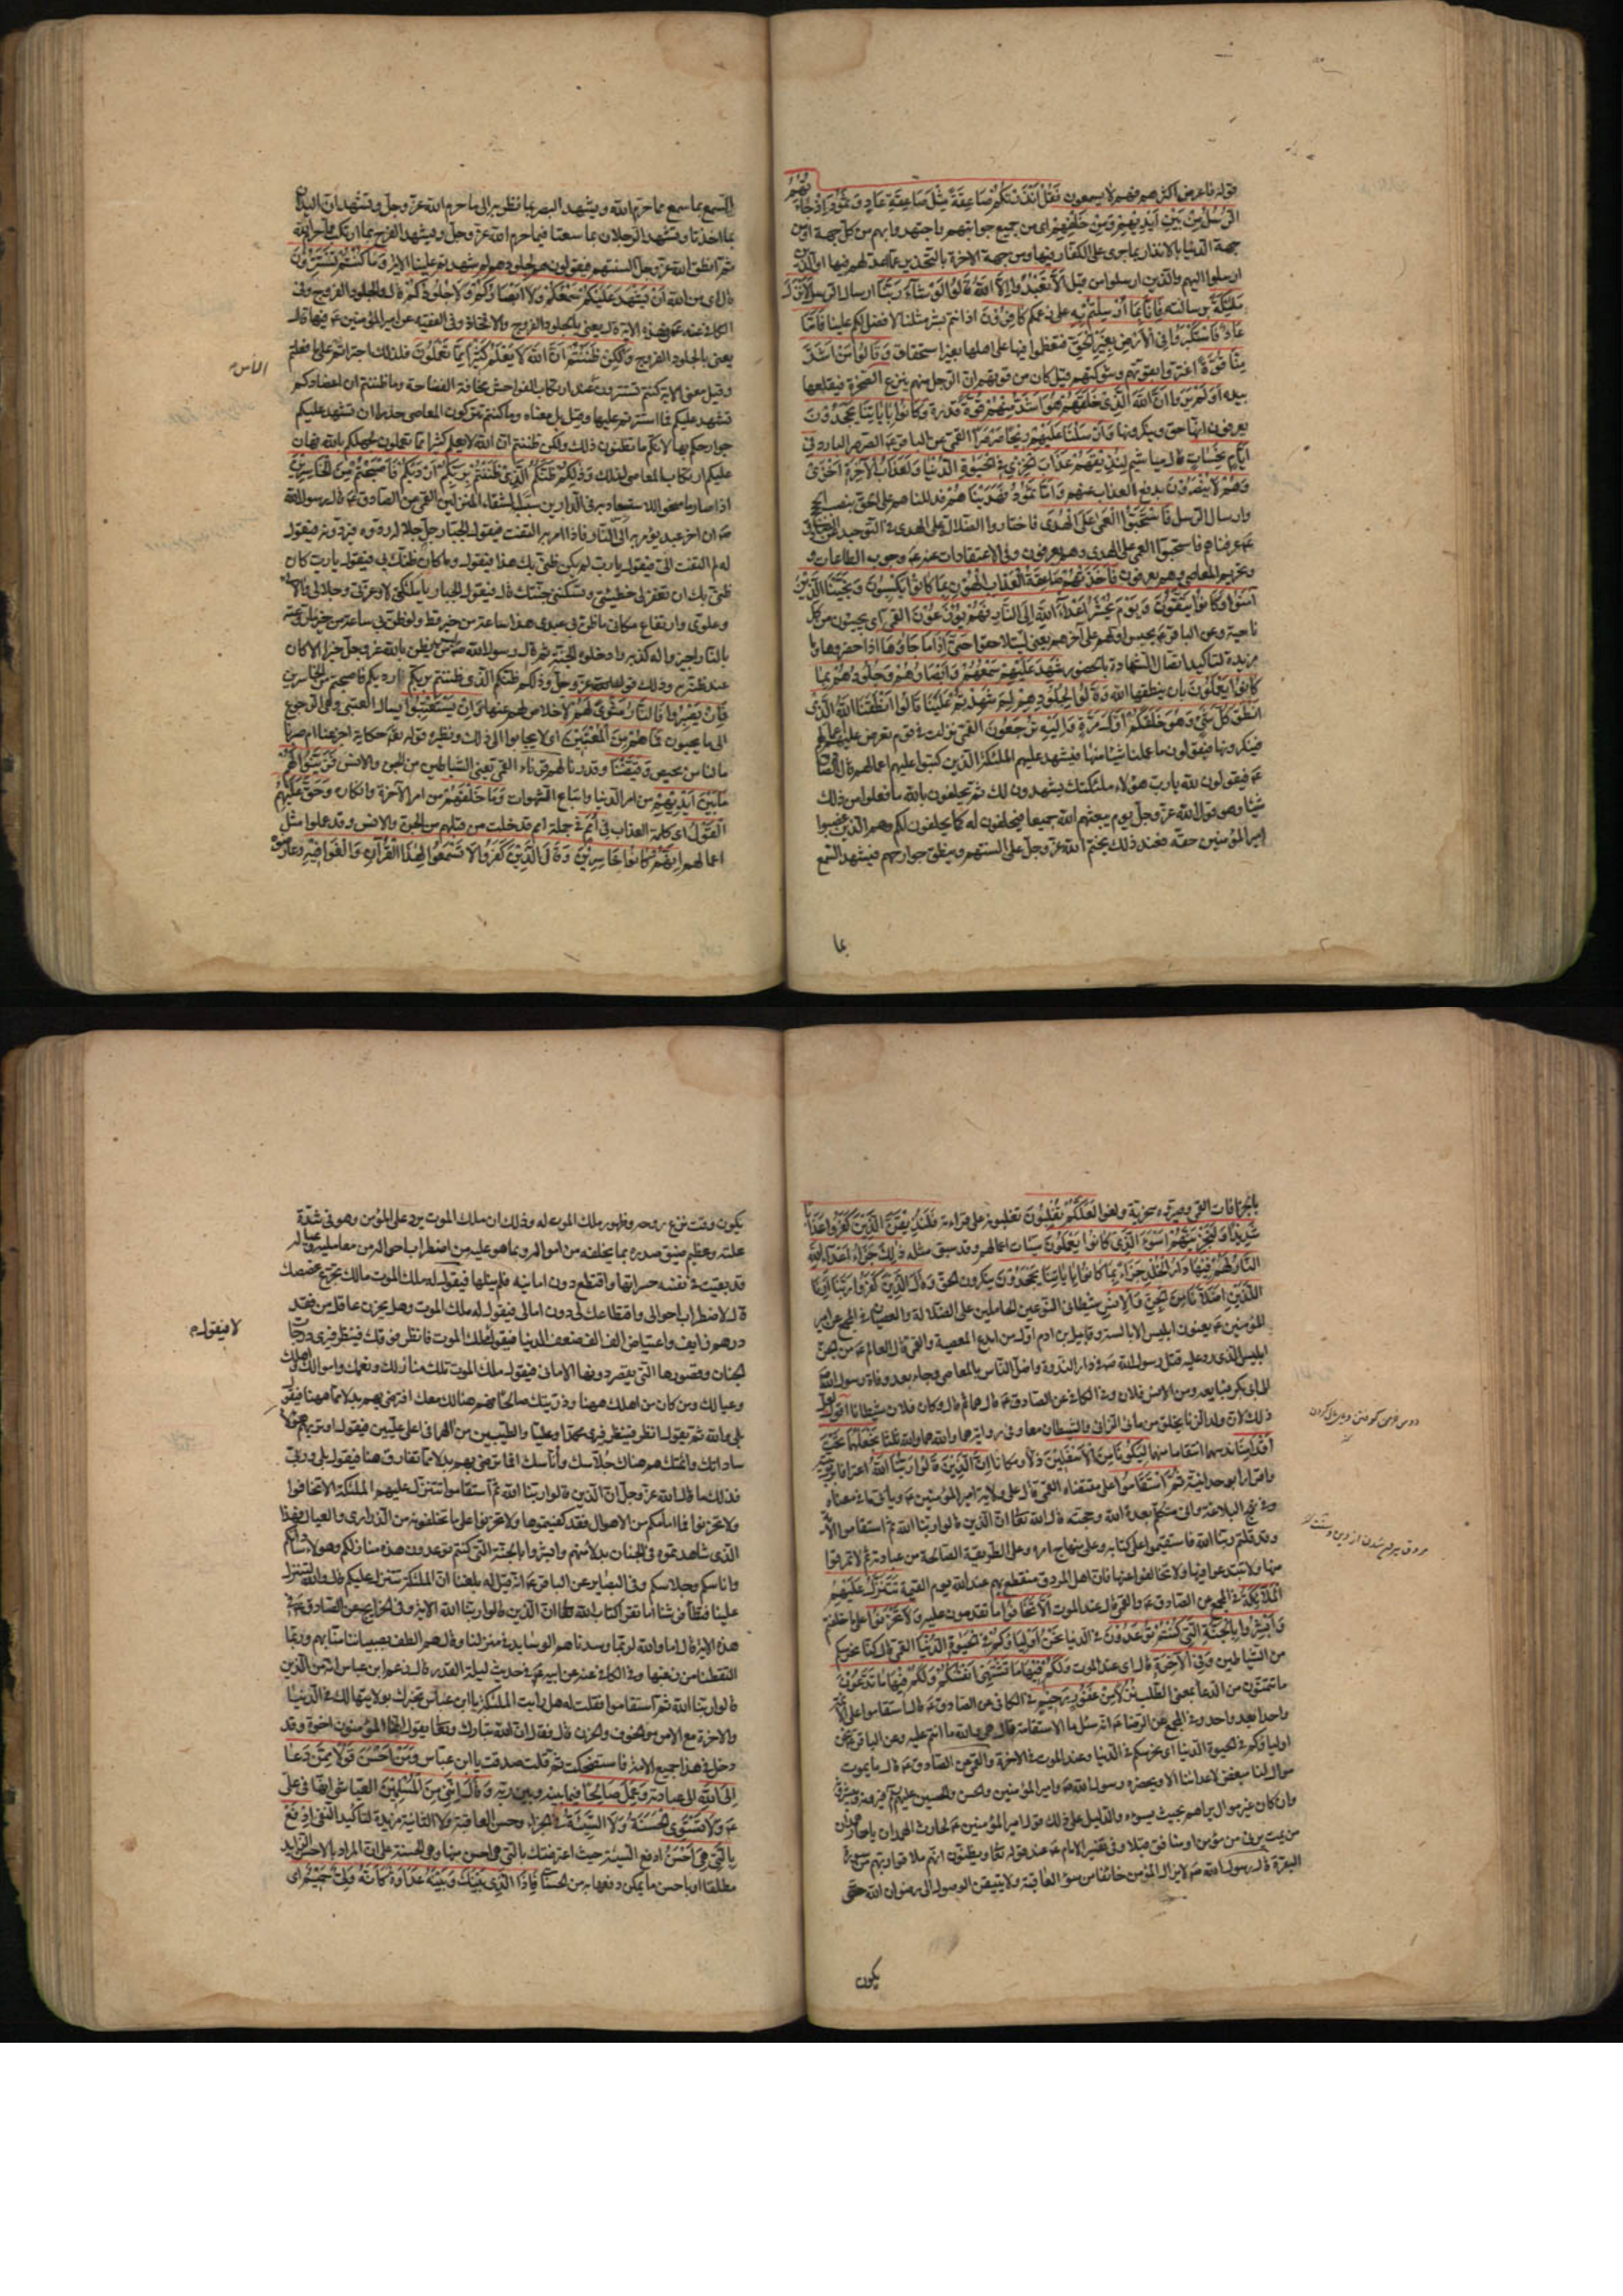 قوله فاعرض اكثرهم فهم لا يسمعون فَقُلْ أَنْذَرْتُكُمْ صَاعِقَةً مِثْلَ صَاعِقَةِ عَادٍ وَثَمُودَ إِذْ جَاءَتْهُمُ
الرُّسُلُ مِنْ بَيْنِ أَيْدِيهِمْ وَمِنْ خَلْفِهِمْ اى من جميع جوانبهم واجتهدوا بهم من كل جهة او من
جهة الدنيا بالانذار بما جرى على الكفار فيها ومن جهة الاخرة بالتحذير عما اعد لهم فيها او الذين
ارسلوا اليهم والذين ارسلوا من قبل أَلَّا تَعْبُدُوا إِلَّا اللَّهَ قَالُوا لَوْ شَاءَ رَبُّنَا ارسال الرسل لَأَنْزَلَ
مَلَائِكَةً برسالته فَإِنَّا بِمَا أُرْسِلْتُمْ بِهِ على زعمكم كَافِرُونَ اذ انتم بشر مثلنا لا فضل لكم علينا فَأَمَّا
عَادٌ فَاسْتَكْبَرُوا فِي الْأَرْضِ بِغَيْرِ الْحَقِّ فتعظموا فيها على اهلها بغير استحقاق وَقَالُوا مَنْ أَشَدُّ
مِنَّا قُوَّةً اغتروا بقوتهم وشوكتهم قيل كان من قوتهم ان الرجل منهم ينزع الصخرة فيقلعها
بيده أَوَلَمْ يَرَوْا أَنَّ اللَّهَ الَّذِي خَلَقَهُمْ هُوَ أَشَدُّ مِنْهُمْ قُوَّةً قدرة وَكَانُوا بِآيَاتِنَا يَجْحَدُونَ
يعرفون انها حق وينكرونها فَأَرْسَلْنَا عَلَيْهِمْ رِيحًا صَرْصَرًا القمى عن الباقر ع الصرصر البارد فِي
أَيَّامٍ نَحِسَاتٍ قال مياشيم لِنُذِيقَهُمْ عَذَابَ الْخِزْيِ فِي الْحَيَوةِ الدُّنْيَا وَلَعَذَابُ الْآخِرَةِ أَخْزَى
وَهُمْ لَا يُنْصَرُونَ بدفع العذاب عنهم وَأَمَّا ثَمُودُ فَهَدَيْنَاهُمْ فدللناهم على الحق بنصب الحجج
وارسال الرسل فَاسْتَحَبُّوا الْعَمَى عَلَى الْهُدَى فاختاروا الضلالة على الهدى في التوحيد عن الصادق
ع عرفناهم فاستحبوا العمى على الهدى وهم يعرفون وفى الاعتقادات عنه ع وجوب الطاعات و
وتحريم المعاصى وهم يعرفون فَأَخَذَتْهُمْ صَاعِقَةُ الْعَذَابِ الْهُونِ بِمَا كَانُوا يَكْسِبُونَ وَنَجَّيْنَا الَّذِينَ
آمَنُوا وَكَانُوا يَتَّقُونَ وَيَوْمَ يُحْشَرُ أَعْدَاءُ اللَّهِ إِلَى النَّارِ فَهُمْ يُوزَعُونَ القمى اى يجيئون من كل
ناحية وعن الباقر ع يحبس اولهم على آخرهم يعنى ليتلاحقوا حَتَّى إِذَا مَا جَاؤُهَا اذا حضروها وما
مزيدة لتاكيد اتصال الشهادة بالحضور شَهِدَ عَلَيْهِمْ سَمْعُهُمْ وَأَبْصَارُهُمْ وَجُلُودُهُمْ بِمَا
كَانُوا يَعْمَلُونَ بان ينطقها الله وَقَالُوا لِجُلُودِهِمْ لِمَ شَهِدْتُمْ عَلَيْنَا قَالُوا أَنْطَقَنَا اللَّهُ الَّذِي
أَنْطَقَ كُلَّ شَيْءٍ وَهُوَ خَلَقَكُمْ أَوَّلَ مَرَّةٍ وَإِلَيْهِ تُرْجَعُونَ القمى نزلت فى قوم تعرض عليهم اعمالهم
فينكرونها فيقولون ما عملنا شيئا منها فيشهد عليهم الملئكة الذين كتبوا عليهم اعمالهم قال الصادق
ع فيقولون لله يارب هؤلاء ملئكتك يشهدون لك ثم يحلفون بالله ما فعلوا من ذلك
شيئا وهو قول الله عز وجل يوم يبعثهم الله جميعا فيحلفون له كما يحلفون لكم وهم الذين غصبوا
امير المؤمنين حقه فعند ذلك يختم الله عز وجل على السنتهم وينطق جوارحهم فيشهد السمع
بما
السمع بما سمع مما حرم الله ويشهد البصر بما نظر به الى ما حرم الله عز وجل وتشهد اليدان
بما اخذتا وتشهد الرجلان بما سعتا فيما حرم الله عز وجل ويشهد الفرج بما ارتكب مما حرم الله
ثم انطق الله عز وجل السنتهم فيقولون هم لجلودهم لم شهدتم علينا الاية وَمَا كُنْتُمْ تَسْتَتِرُونَ
قال اى من الله أَنْ يَشْهَدَ عَلَيْكُمْ سَمْعُكُمْ وَلَا أَبْصَارُكُمْ وَلَا جُلُودُكُمْ قال والجلود الفروج وفى
الكافى عنه ع فى هذه الاية قال يعنى بالجلود الفروج والافخاذ وفى الفقيه عن امير المؤمنين ع فيها قال
يعنى بالجلود الفروج وَلَكِنْ ظَنَنْتُمْ أَنَّ اللَّهَ لَا يَعْلَمُ كَثِيرًا مِمَّا تَعْمَلُونَ فلذلك اجتراتم على ما فعلتم
وقيل معنى الاية كنتم تستترون عند ارتكاب الفواحش مخافة الفضاحة وما ظننتم ان اعضاءكم
الناس
تشهد عليكم فما استترتم عليها وقيل بل معناه وما كنتم تتركون المعاصى حذرا ان تشهد عليكم
جوارحكم بها لانكم ما تظنون ذلك ولكن ظننتم ان الله لا يعلم كثيرا مما تعملون لجهلكم بالله فهان
عليكم ارتكاب المعاصى لذلك وَذَلِكُمْ ظَنُّكُمُ الَّذِي ظَنَنْتُمْ بِرَبِّكُمْ أَرْدَيكُمْ فَأَصْبَحْتُمْ مِنَ الْخَاسِرِينَ
اذ صار ما منحوا للاستسعاد به فى الدارين سببا لشقاء المنزلين القمى عن الصادق ع قال رسول الله
ص ان آخر عبد يؤمر به الى النار فاذا امر به التفت فيقول الجبار جل جلاله ردوه فيردونه فيقول
له لم التفت الى فيقول يارب لم يكن ظنى بك هذا فيقول وما كان ظنك بى فيقول يارب كان
ظنى بك ان تغفر لى خطيئتى وتسكننى جنتك قال فيقول الجبار يا ملئكتى لا وعزتى وجلالى وآلائى
وعلوى وارتفاع مكانى ما ظن بى عبدى هذا ساعة من خير قط ولو ظن بى ساعة من خير ما روعته
بالنار اجيزوا له كذبه وادخلوه الجنة ثم قال رسول الله ص ليس من عبد يظن بالله عز وجل خيرا الا كان
عند ظنه به وذلك قوله عز وجل وذلكم ظنكم الذى ظننتم بربكم ارديكم فاصبحتم من الخاسرين
فَإِنْ يَصْبِرُوا فَالنَّارُ مَثْوًى لَهُمْ لا خلاص لهم عنها وَإِنْ يَسْتَعْتِبُوا يسالوا العتبى وهى الرجوع
الى ما يحبون فَمَا هُمْ مِنَ الْمُعْتَبِينَ اى لا يجابوا الى ذلك ونظيره قوله تعالى حكاية اجزعنا ام صبرنا
ما لنا من محيص وَقَيَّضْنَا وقدرنا لَهُمْ قُرَنَاءَ القمى يعنى الشياطين من الجن والانس فَزَيَّنُوا لَهُمْ
مَا بَيْنَ أَيْدِيهِمْ من امر الدنيا واتباع الشهوات وَمَا خَلْفَهُمْ من امر الآخرة وانكاره وَحَقَّ عَلَيْهِمُ
الْقَوْلُ اى كلمة العذاب فِي أُمَمٍ فى جملة امم قد خلت من قبلهم من الجن والانس وقد عملوا مثل
اعمالهم إِنَّهُمْ كَانُوا خَاسِرِينَ وَقَالَ الَّذِينَ كَفَرُوا لَا تَسْمَعُوا لِهَذَا الْقُرْآنِ وَالْغَوْا فِيهِ وعارضوه
بالخرافات القمى وصيروه سخرية ولغوا لَعَلَّكُمْ تَغْلِبُونَ تغلبونه على قراءته فَلَنُذِيقَنَّ الَّذِينَ كَفَرُوا عَذَابًا
شَدِيدًا وَلَنَجْزِيَنَّهُمْ أَسْوَءَ الَّذِي كَانُوا يَعْمَلُونَ سيئات اعمالهم وقد سبق مثله ذَلِكَ جَزَاءُ أَعْدَاءِ اللَّهِ
النَّارُ لَهُمْ فِيهَا دَارُ الْخُلْدِ جَزَاءً بِمَا كَانُوا بِآيَاتِنَا يَجْحَدُونَ ينكرون الحق وَقَالَ الَّذِينَ كَفَرُوا رَبَّنَا أَرِنَا
اللَّذَيْنِ أَضَلَّانَا مِنَ الْجِنِّ وَالْإِنْسِ شيطانى النوعين الحاملين على الضلالة والعصيان فى المجمع عن امير
المؤمنين ع يعنون ابليس الابالسة وقابيل بن ادم اول من ابدع المعصية والقمى قال العالم ع من الجن
ابليس الذى رد عليه قتل رسول الله ص فى دار الندوة واضل الناس بالمعاصى وجاء بعد وفاة رسول الله ص
الى ابى بكر فبايعه ومن الانس فلان وفى الكافى عن الصادق ع قال هما ثم قال وكان فلان شيطانا اقول لعل
ذلك لان ولد الزنا يخلق من مائى الزانى والشيطان معا وفى رواية هما والله هما والله ثلثا نَجْعَلْهُمَا تَحْتَ
أَقْدَامِنَا ندسهما انتقاما منهما لِيَكُونَا مِنَ الْأَسْفَلِينَ ذلا ومكانا إِنَّ الَّذِينَ قَالُوا رَبُّنَا اللَّهُ اعترافا بربوبيته
واقرارا بوحدانيته ثُمَّ اسْتَقَامُوا على مقتضاه القمى قال على ولاية امير المؤمنين ع وياتى ما فى معناه
وفى نهج البلاغة وانى متكلم بعدة الله وحجته قال الله تعالى ان الذين قالوا ربنا الله ثم استقاموا الاية
وقد قلتم ربنا الله فاستقيموا على كتابه وعلى منهاج امره وعلى الطريقة الصالحة من عبادته ثم لا تمرقوا
منها ولا تبتدعوا فيها ولا تخالفوا عنها فان اهل المروق منقطع بهم عند الله يوم القيمة تَتَنَزَّلُ عَلَيْهِمُ
الْمَلَئِكَةُ فى المجمع عن الصادق ع والقمى قال عند الموت أَلَّا تَخَافُوا ما تقدمون عليه وَلَا تَحْزَنُوا على ما خلفتم
وَأَبْشِرُوا بِالْجَنَّةِ الَّتِي كُنْتُمْ تُوعَدُونَ فى الدنيا نَحْنُ أَوْلِيَاؤُكُمْ فِي الْحَيَوةِ الدُّنْيَا القمى قال كنا نحرسكم
من الشياطين وَفِي الْآخِرَةِ قال اى عند الموت وَلَكُمْ فِيهَا مَا تَشْتَهِي أَنْفُسُكُمْ وَلَكُمْ فِيهَا مَا تَدَّعُونَ
ما تتمنون من الدعاء بمعنى الطلب نُزُلًا مِنْ غَفُورٍ رَحِيمٍ فى الكافى عن الصادق ع قال استقاموا على الائمة
واحدا بعد واحد وفى المجمع عن الرضا ع انه سئل ما الاستقامة قال هى والله ما انتم عليه وعن الباقر ع نحن
اولياؤكم فى الحيوة الدنيا اى نحرسكم فى الدنيا وعند الموت فى الاخرة والقمى عن الصادق ع قال ما يموت
موال لنا مبغض لاعدائنا الا ويحضره رسول الله ص وامير المؤمنين والحسن والحسين عليهم فيرونه ويبشرونه
وان كان غير موال يراهم بحيث يسوءه والدليل على ذلك قول امير المؤمنين ع لحارث الهمدان يا حار همدان
من يمت يرنى من مؤمن او منافق قبلا وفى تفسير الامام ع عند قوله تعالى ويظنون انهم ملاقوا ربهم من سورة
البقرة قال رسول الله ص لا يزال المؤمن خائفا من سوء العاقبة ولا يتيقن الوصول الى رضوان الله حتى
يكون
يكون وقت نزع روحه وظهور ملك الموت له وذلك ان ملك الموت يرد على المؤمن وهو فى شدة
علته وعظيم ضيق صدره بما يخلفه من امواله وبما هو عليه من اضطراب احواله من معامليه وعياله
قد بقيت فى نفسه حسراتها واقتطع دون امانيه فلم ينلها فيقول له ملك الموت مالك تجرع غصصك
قال لاضطراب احوالى واقتطاعك لى دون امالى فيقول له ملك الموت وهل يحزن عاقل من فقد
لا فيقول
درهم زايف واعتياض الف الف ضعف الدنيا فيقول ملك الموت فانظر فوقك فينظر فيرى درجات
الجنان وقصورها التى يقصر دونها الامانى فيقول ملك الموت تلك منازلك ونعمك واموالك واهلك
وعيالك ومن كان من اهلك ههنا وذريتك صالحا فهم هنالك معك افترضى بهم بدلا مما ههنا فيقول
بلى والله ثم يقول انظر فينظر فيرى محمدا وعليا والطيبين من الهما فى اعلى عليين فيقول اوتريهم هؤلاء
ساداتك وائمتك هم هناك جلاسك واناسك افما ترضى بهم بدلا مما تفارق هنا فيقول بلى وربى
فذلك ما قال الله عز وجل ان الذين قالوا ربنا الله ثم استقاموا تتنزل عليهم الملئكة الا تخافوا
ولا تحزنوا فما امامكم من الاهوال فقد كفيتموها ولا تحزنوا على ما تخلفونه من الذرارى والعيال فهذا
الذى شاهدتموه فى الجنان بدلا منهم وابشروا بالجنة التى كنتم توعدون هذه منازلكم وهؤلاء ساداتكم
واناسكم وجلاسكم وفى البصاير عن الباقر ع انه قيل له يبلغنا ان الملئكة تتنزل عليكم قال اى والله لتنزل
علينا فتطأ فرشنا اما تقرا كتاب الله تعالى ان الذين قالوا ربنا الله الاية وفى الخرايج عن الصادق ع فى
هذه الاية قال اما والله لربما وسدناهم الوسايد فى منزلنا وقال هم الطف بصبياننا منا بهم وربما
التقطنا من زغبها وفى الكافى عنه عن ابيه ع فى حديث ليلة القدر قال زعم ابن عباس انه من الذين
قالوا ربنا الله ثم استقاموا فقلت له هل رايت الملئكة يا ابن عباس تخبرك بولايتها لك فى الدنيا
والاخرة مع الامن من الخوف والحزن قال فقال ان الله تبارك وتعالى يقول انما المؤمنون اخوة وقد
دخل فى هذا جميع الامة فاستضحكت ثم قلت صدقت يا ابن عباس وَمَنْ أَحْسَنُ قَوْلًا مِمَّنْ دَعَا
إِلَى اللَّهِ الى عبادته وَعَمِلَ صَالِحًا فيما بينه وبين ربه وَقَالَ إِنَّنِي مِنَ الْمُسْلِمِينَ العياشى انها فى على
ع وَلَا تَسْتَوِي الْحَسَنَةُ وَلَا السَّيِّئَةُ فى الجزاء وحسن العاقبة ولا الثانية مزيدة لتاكيد النفى ادْفَعْ
بِالَّتِي هِيَ أَحْسَنُ ادفع السيئة حيث اعترضتك بالتى هى احسن منها وهى الحسنة على ان المراد بالاحسن الزايد
مطلقا او باحسن ما يمكن دفعها به من الحسنات فَإِذَا الَّذِي بَيْنَكَ وَبَيْنَهُ عَدَاوَةٌ كَأَنَّهُ وَلِيٌّ حَمِيمٌ اى